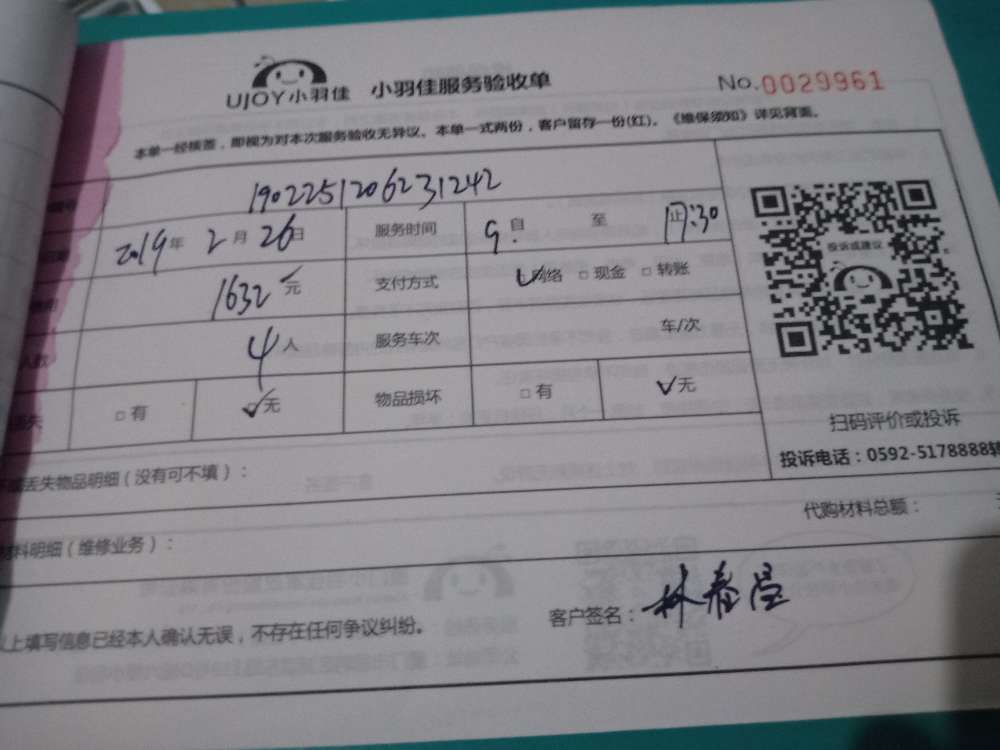 UJOY小羽佳 小羽佳服务验收单 No.0029961
本单一经核签，即视为对本次服务验收无异议。本单一式两份，客户留存一份(红)。《维保须知》详见背面。
1902251206231242
2019年2月26日 服务时间 9:自 至 17:30止
1632元 支付方式 ☑网络 □现金 □转账
人数 4人 服务车次 车/次
□有 ☑无 物品损坏 □有 ☑无
投诉或建议
扫码评价或投诉
投诉电话：0592-5178888转
丢失物品明细（没有可不填）：
料明细（维修业务）： 代购材料总额：
上填写信息已经本人确认无误，不存在任何争议纠纷。 客户签名：林春